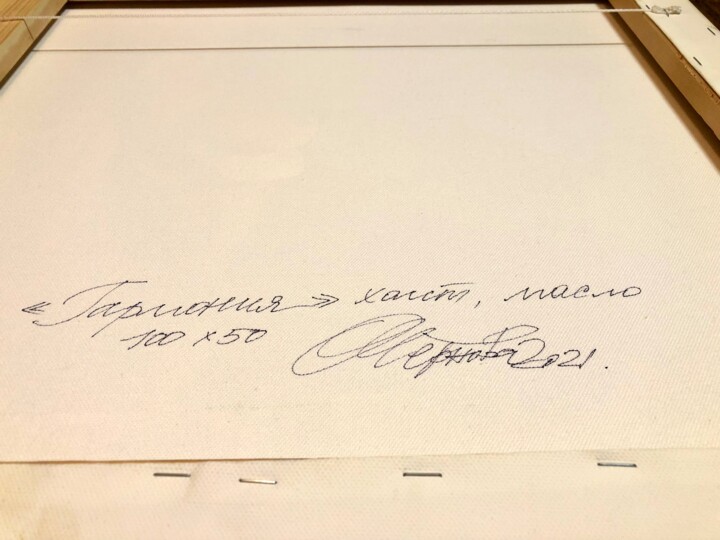 «Гармония» холст, масло
100 х 50
2021.